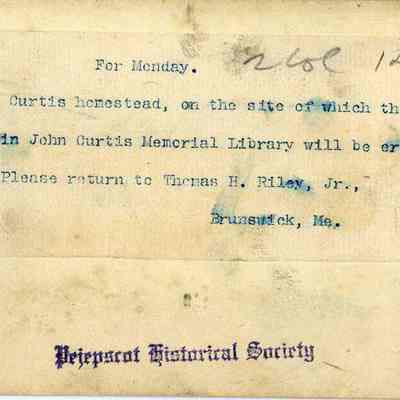 For Monday. 2 col
Curtis homestead, on the site of which th
in John Curtis Memorial Library will be er
Please return to Thomas H. Riley, Jr.,
Brunswick, Me.
Pejepscot Historical Society